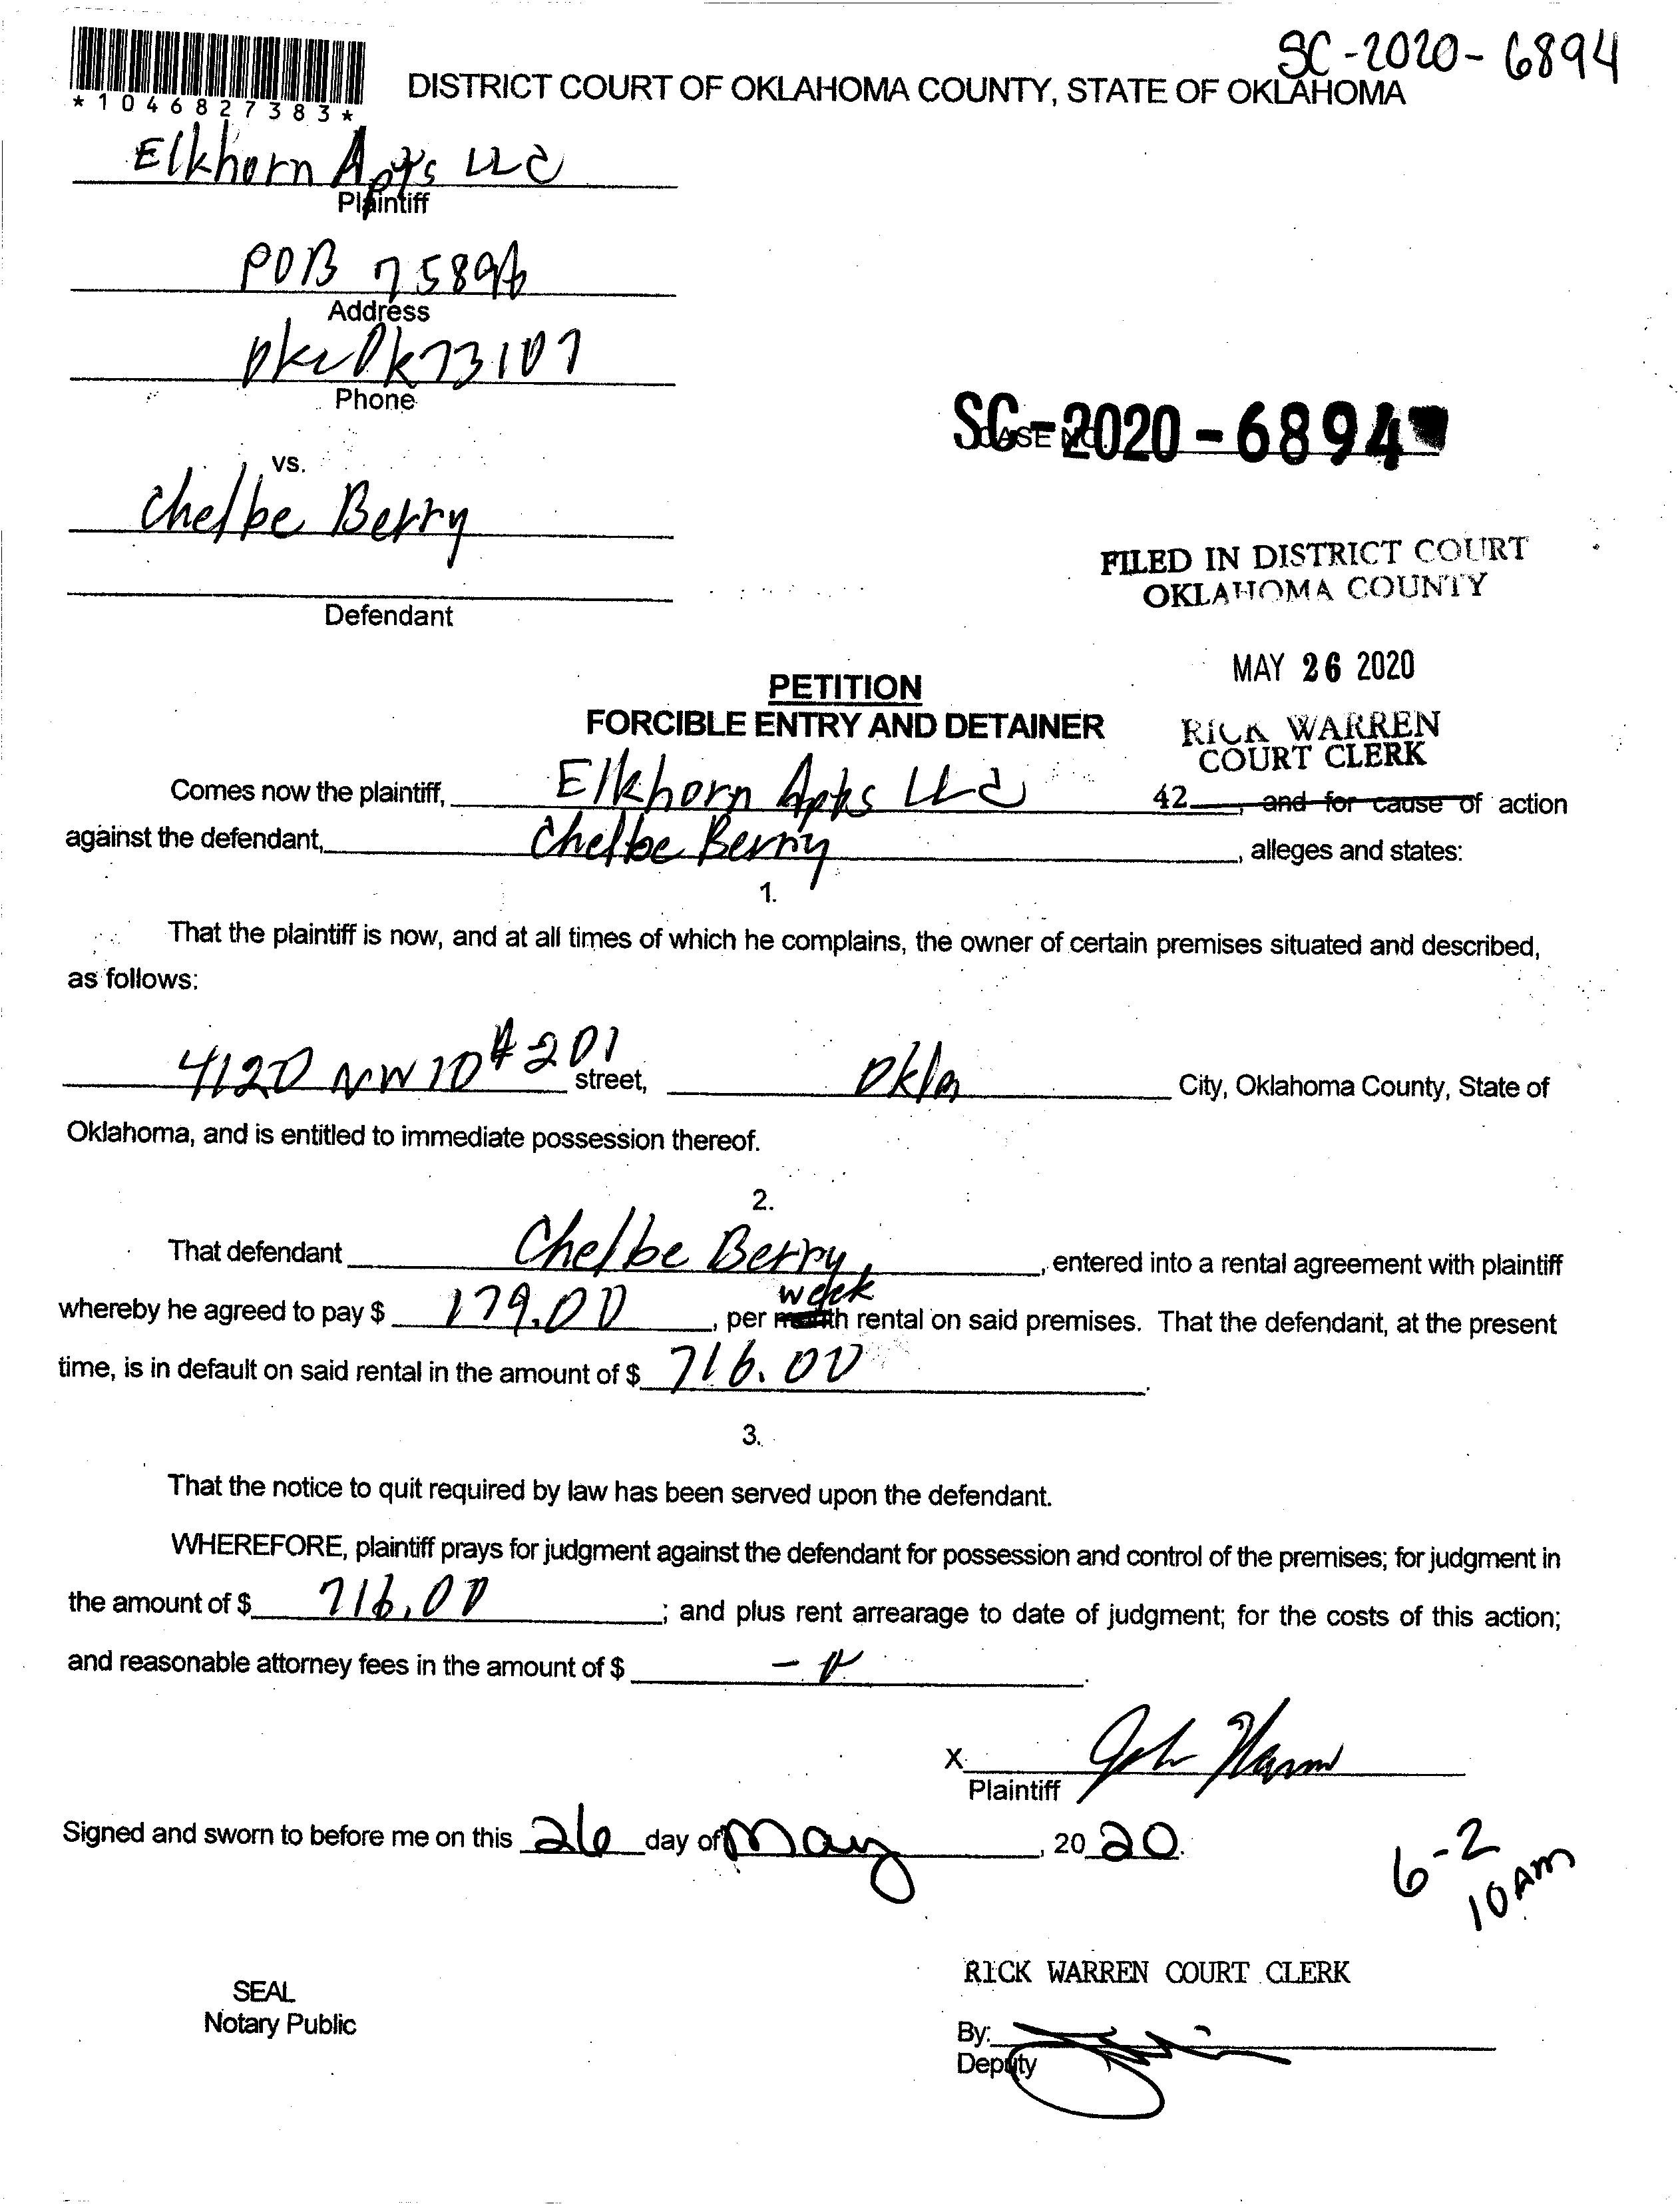 SC-2020-6894
*1046827383*
DISTRICT COURT OF OKLAHOMA COUNTY, STATE OF OKLAHOMA
Elkhorn Apts LLC
Plaintiff
POB 75896
Address
Okc Ok 73107
Phone
SC-2020-6894
CASE NO.
vs.
Chelbe Berry
Defendant
FILED IN DISTRICT COURT
OKLAHOMA COUNTY
MAY 26 2020
RICK WARREN
COURT CLERK
42
PETITION
FORCIBLE ENTRY AND DETAINER
Comes now the plaintiff, Elkhorn Apts LLC, and for cause of action
against the defendant, Chelbe Berry, alleges and states:
1.
That the plaintiff is now, and at all times of which he complains, the owner of certain premises situated and described,
as follows:
4120 NW 10 #201 street, Okla City, Oklahoma County, State of
Oklahoma, and is entitled to immediate possession thereof.
2.
That defendant Chelbe Berry, entered into a rental agreement with plaintiff
whereby he agreed to pay $ 179.00, per month week rental on said premises. That the defendant, at the present
time, is in default on said rental in the amount of $ 716.00.
3.
That the notice to quit required by law has been served upon the defendant.
WHEREFORE, plaintiff prays for judgment against the defendant for possession and control of the premises; for judgment in
the amount of $ 716.00; and plus rent arrearage to date of judgment; for the costs of this action;
and reasonable attorney fees in the amount of $
X
Plaintiff
Signed and sworn to before me on this 26 day of May, 2020.
6-2
10 AM
RICK WARREN COURT CLERK
SEAL
Notary Public
By:
Deputy